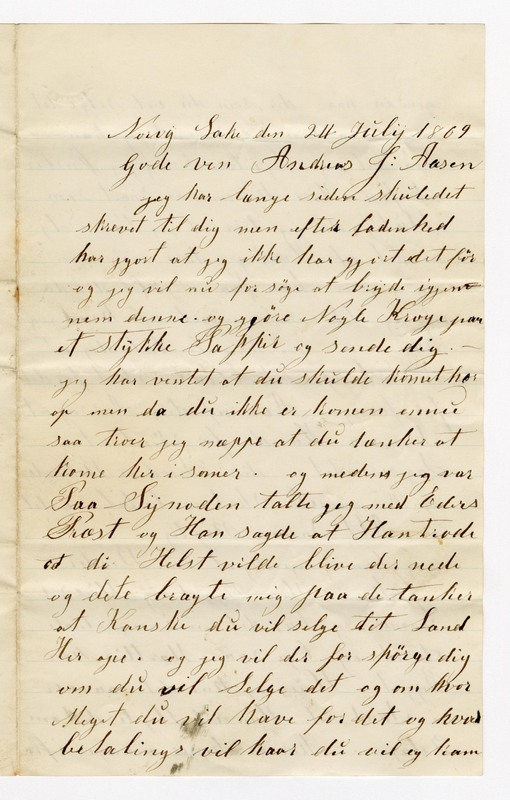 Norvg Lake den 24 July 1869
Gode ven Andrews J: Aasen
jeg har lange siden skuledet
skrevet til dig men efter ladenhed
har jgort at jeg ikke har gjort det för
og jeg vil nu for söge at bryde igjen
nem denne. og gjöre Nogle Kroge paa
et stykke Pappir og sende dig. —
jeg har ventet at du skulde komet her
op men da du ikke er komen ennu
saa troer jeg næppe at du tænker at
kome her i somer. og medens jeg var
Paa Synoden talte jeg med Eders
Præst og Han sagde at Han trode
at di Helst vilde blive der nede
og dete bragte mig paa de tanker
at Kanske du vil selge dit Land
Her ope. og jeg vil der for spörge dig
om du vil Selge det og om hvor
Meget du vil have for det og hvad
betalings vilkaar du vil eg kam